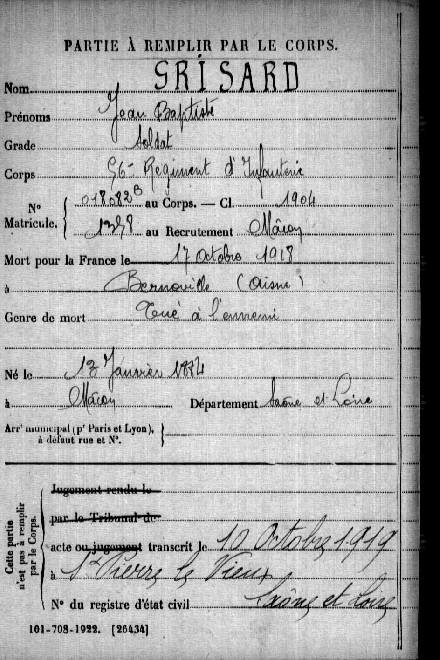 PARTIE À REMPLIR PAR LE CORPS.
Nom GRISARD
Prénoms Jean Baptiste
Grade Soldat
Corps 56e Régiment d'Infanterie
N° Matricule. { 018082B au Corps. — Cl. 1904
au Recrutement Mâcon
Mort pour la France le 17 Octobre 1918
à Bernoville (Aisne)
Genre de mort Tué à l'ennemi
Né le Janvier
à Mâcon Département Saône et Loire
Arrt municipal (pr Paris et Lyon), à défaut rue et N°.
Cette partie n'est pas à remplir par le Corps.
Jugement rendu le
par le Tribunal de
acte ou jugement transcrit le 10 Octobre 1919
à St Pierre le Vieux
N° du registre d'état civil Saône et Loire
101-708-1922. [26434]